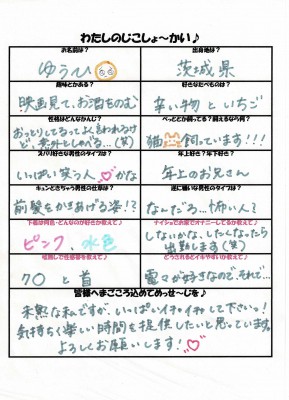 わたしのじこしょ～かい♪
お名前は？
出身地は？
ゆうひ
茨城県
趣味とかある？
好きなたべものは？
映画見て、お酒をのむ
辛い物といちご
性格はどんなかんじ？
ぺっととか飼ってる？飼えるなら何？
おっとりしてるってよく言われるけど、意外としゃべる…(笑)
猫 飼っています！！！
ズバリ好きな男性のタイプは？
年上好き？年下好き？
いっぱい笑う人 かな
年上のお兄さん
キュンとさちゃう男性の仕草は？
逆に嫌いな男性のタイプは？
前髪をかきあげる姿!?
なんだろ…怖い人？
ピンク、水色
しないかな、したくなったら出勤します(笑)
7○と首
電マが好きなので、それで…
皆様へまごころ込めてめっせ～じを♪
未熟な私ですが、いっぱいイチャイチャして下さい。！
気持ちく楽しい時間を提供したいと思っています。
よろしくお願いします！